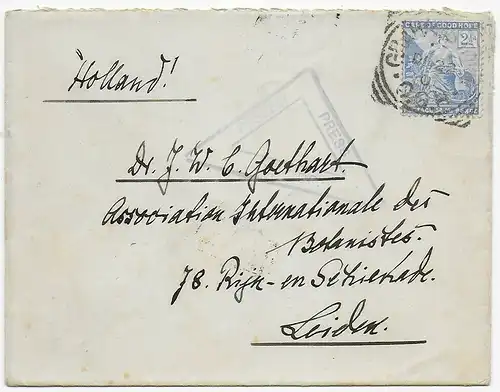 CAPE OF GOOD HOPE
Holland!
PRES
Dr. J. W. C. Goethart.
Association Internationale des
Botanistes.
78. Rijn- en Schiekade.
Leiden.